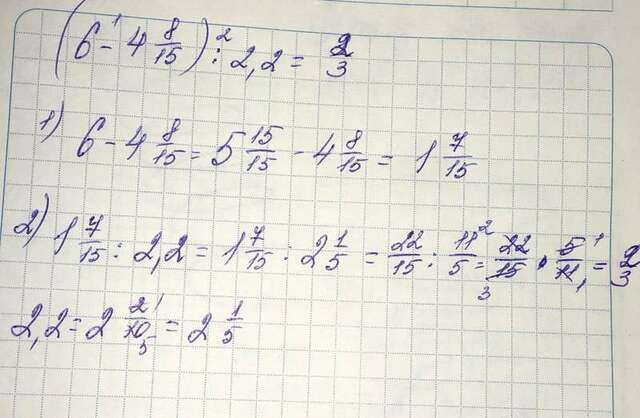 (6 - 4 8/15) : 2,2 = 2/3
1) 6 - 4 8/15 = 5 15/15 - 4 8/15 = 1 7/15
2) 1 7/15 : 2,2 = 1 7/15 : 2 1/5 = 22/15 : 11/5 = 22/15 · 5/11 = 2/3
2,2 = 2 2/10 = 2 1/5